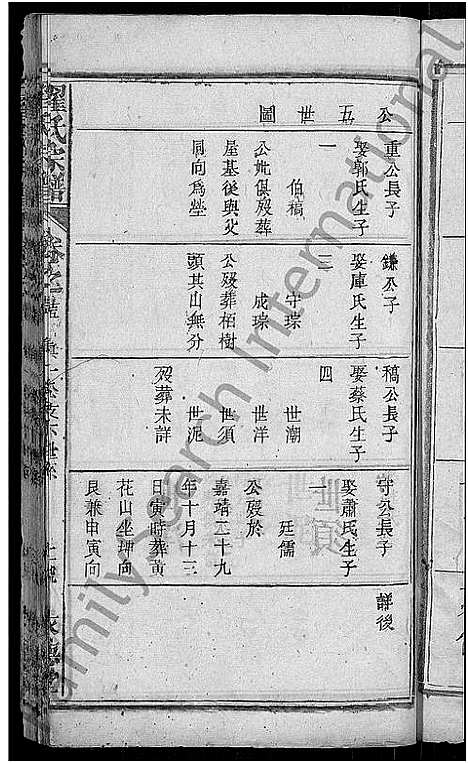 公五世圖
重公長子
娶郭氏生子
一
伯稿
公妣俱歿葬
屋基從與父
同向爲塋
鎌公子
娶庫氏生子
三
守琮
成琮
公歿葬栢樹
頭其山無分
稿公長子
娶蔡氏生子
四
世潮
世洋
世須
世泥
歿葬未詳
守公長子
娶蕭氏生子
一
廷儒
公歿於
嘉靖二十九
年十月十三
日寅時葬黃
花山坐坤向
艮兼申寅向
詳後
氏宗譜
Family Search International